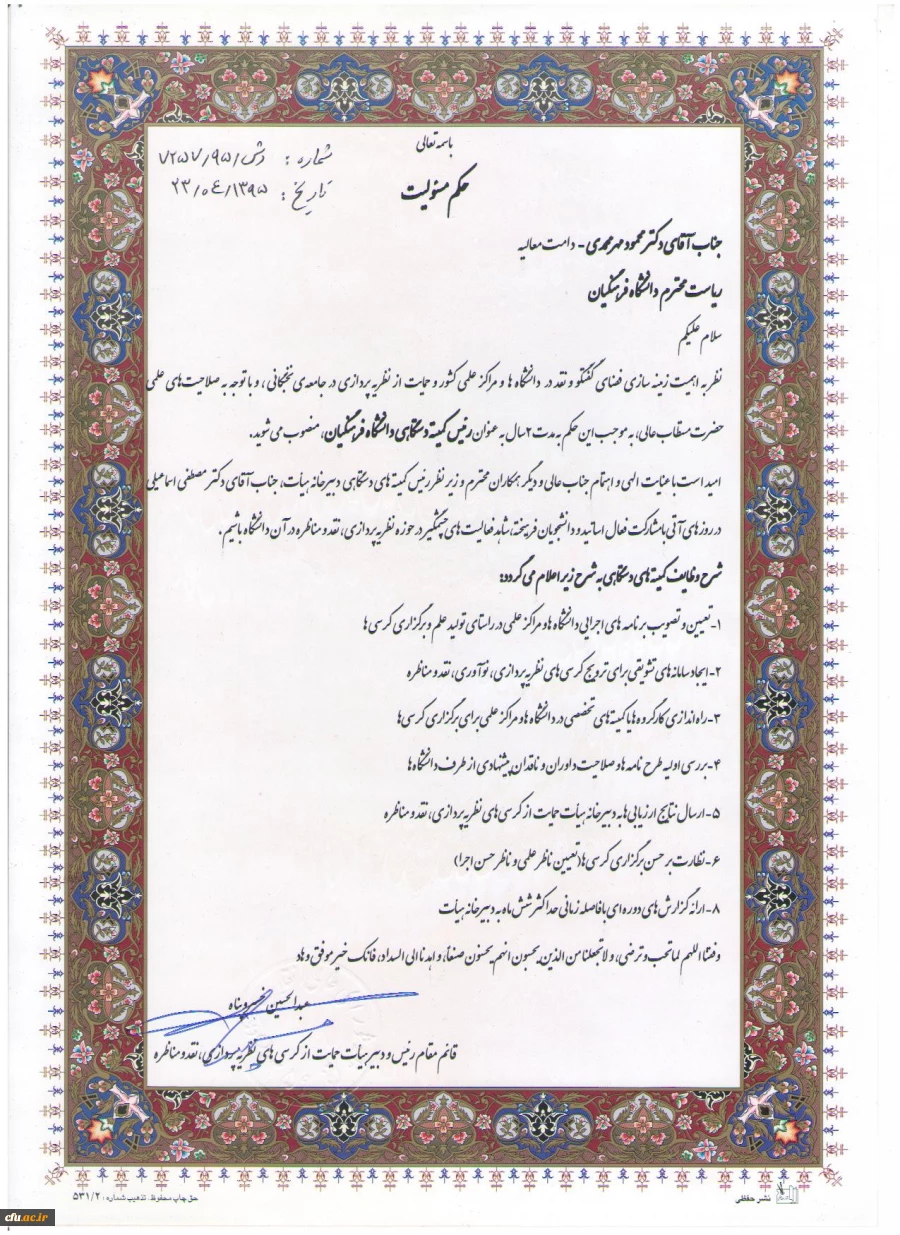 باسمه تعالی
شماره : دش/۹۵/۷۲۵۷
حکم مسئولیت
تاریخ : ۲۳/۰۴/۱۳۹۵
جناب آقای دکتر محمود مهرمحمدی - دامت معالیه
ریاست محترم دانشگاه فرهنگیان
سلام علیکم
نظر به اهمیت زمینه سازی فضای گفتگو و نقد در دانشگاه ها و مراکز علمی کشور و حمایت از نظریه پردازی در جامعه ی نخبگانی، و با توجه به صلاحیت های علمی
حضرت مستطاب عالی، به موجب این حکم به مدت ۲ سال به عنوان رئیس کمیته دستگاهی دانشگاه فرهنگیان، منصوب می شوید.
امید است با عنایت الهی و اهتمام جناب عالی و دیگر همکاران محترم و زیر نظر رئیس کمیته های دستگاهی دبیرخانه هیأت، جناب آقای دکتر مصطفی اسماعیلی
در روز های آتی با مشارکت فعال اساتید و دانشجویان فریخته، شاهد فعالیت های چشمگیر در حوزه نظریه پردازی، نقد و مناظره در آن دانشگاه باشیم.
شرح وظایف کمیته های دستگاهی به شرح زیر اعلام می گردد:
۱- تعیین و تصویب برنامه های اجرایی دانشگاه ها و مراکز علمی در راستای تولید علم و برگزاری کرسی ها
۲- ایجاد سامانه های تشویقی برای ترویج کرسی های نظریه پردازی، نوآوری، نقد و مناظره
۳- راه اندازی کارگروه ها یا کمیته های تخصصی در دانشگاه ها و مراکز علمی برای برگزاری کرسی ها
۴- بررسی اولیه طرح نامه ها و صلاحیت داوران و ناقدان پیشنهادی از طرف دانشگاه ها
۵- ارسال نتایج ارزیابی ها به دبیرخانه هیأت حمایت از کرسی های نظریه پردازی، نقد و مناظره
۶- نظارت بر حسن برگزاری کرسی ها (تعیین ناظر علمی و ناظر حسن اجرا)
۸- ارائه گزارش های دوره ای با فاصله زمانی حداکثر شش ماه به دبیرخانه هیأت
وفقنا اللهم لما تحب و ترضی، و لا تجعلنا من الذین یحسبون انهم یحسنون صنعاً، و اهدنا الی السداد، فانک خیر موفق و هاد
عبدالحسین خسروپناه
قائم مقام رئیس و دبیر هیأت حمایت از کرسی های نظریه پردازی، نقد و مناظره
نشر حفظی
حق چاپ محفوظ. تذهیب شماره : ۵۳۱/۲
cfu.ac.ir